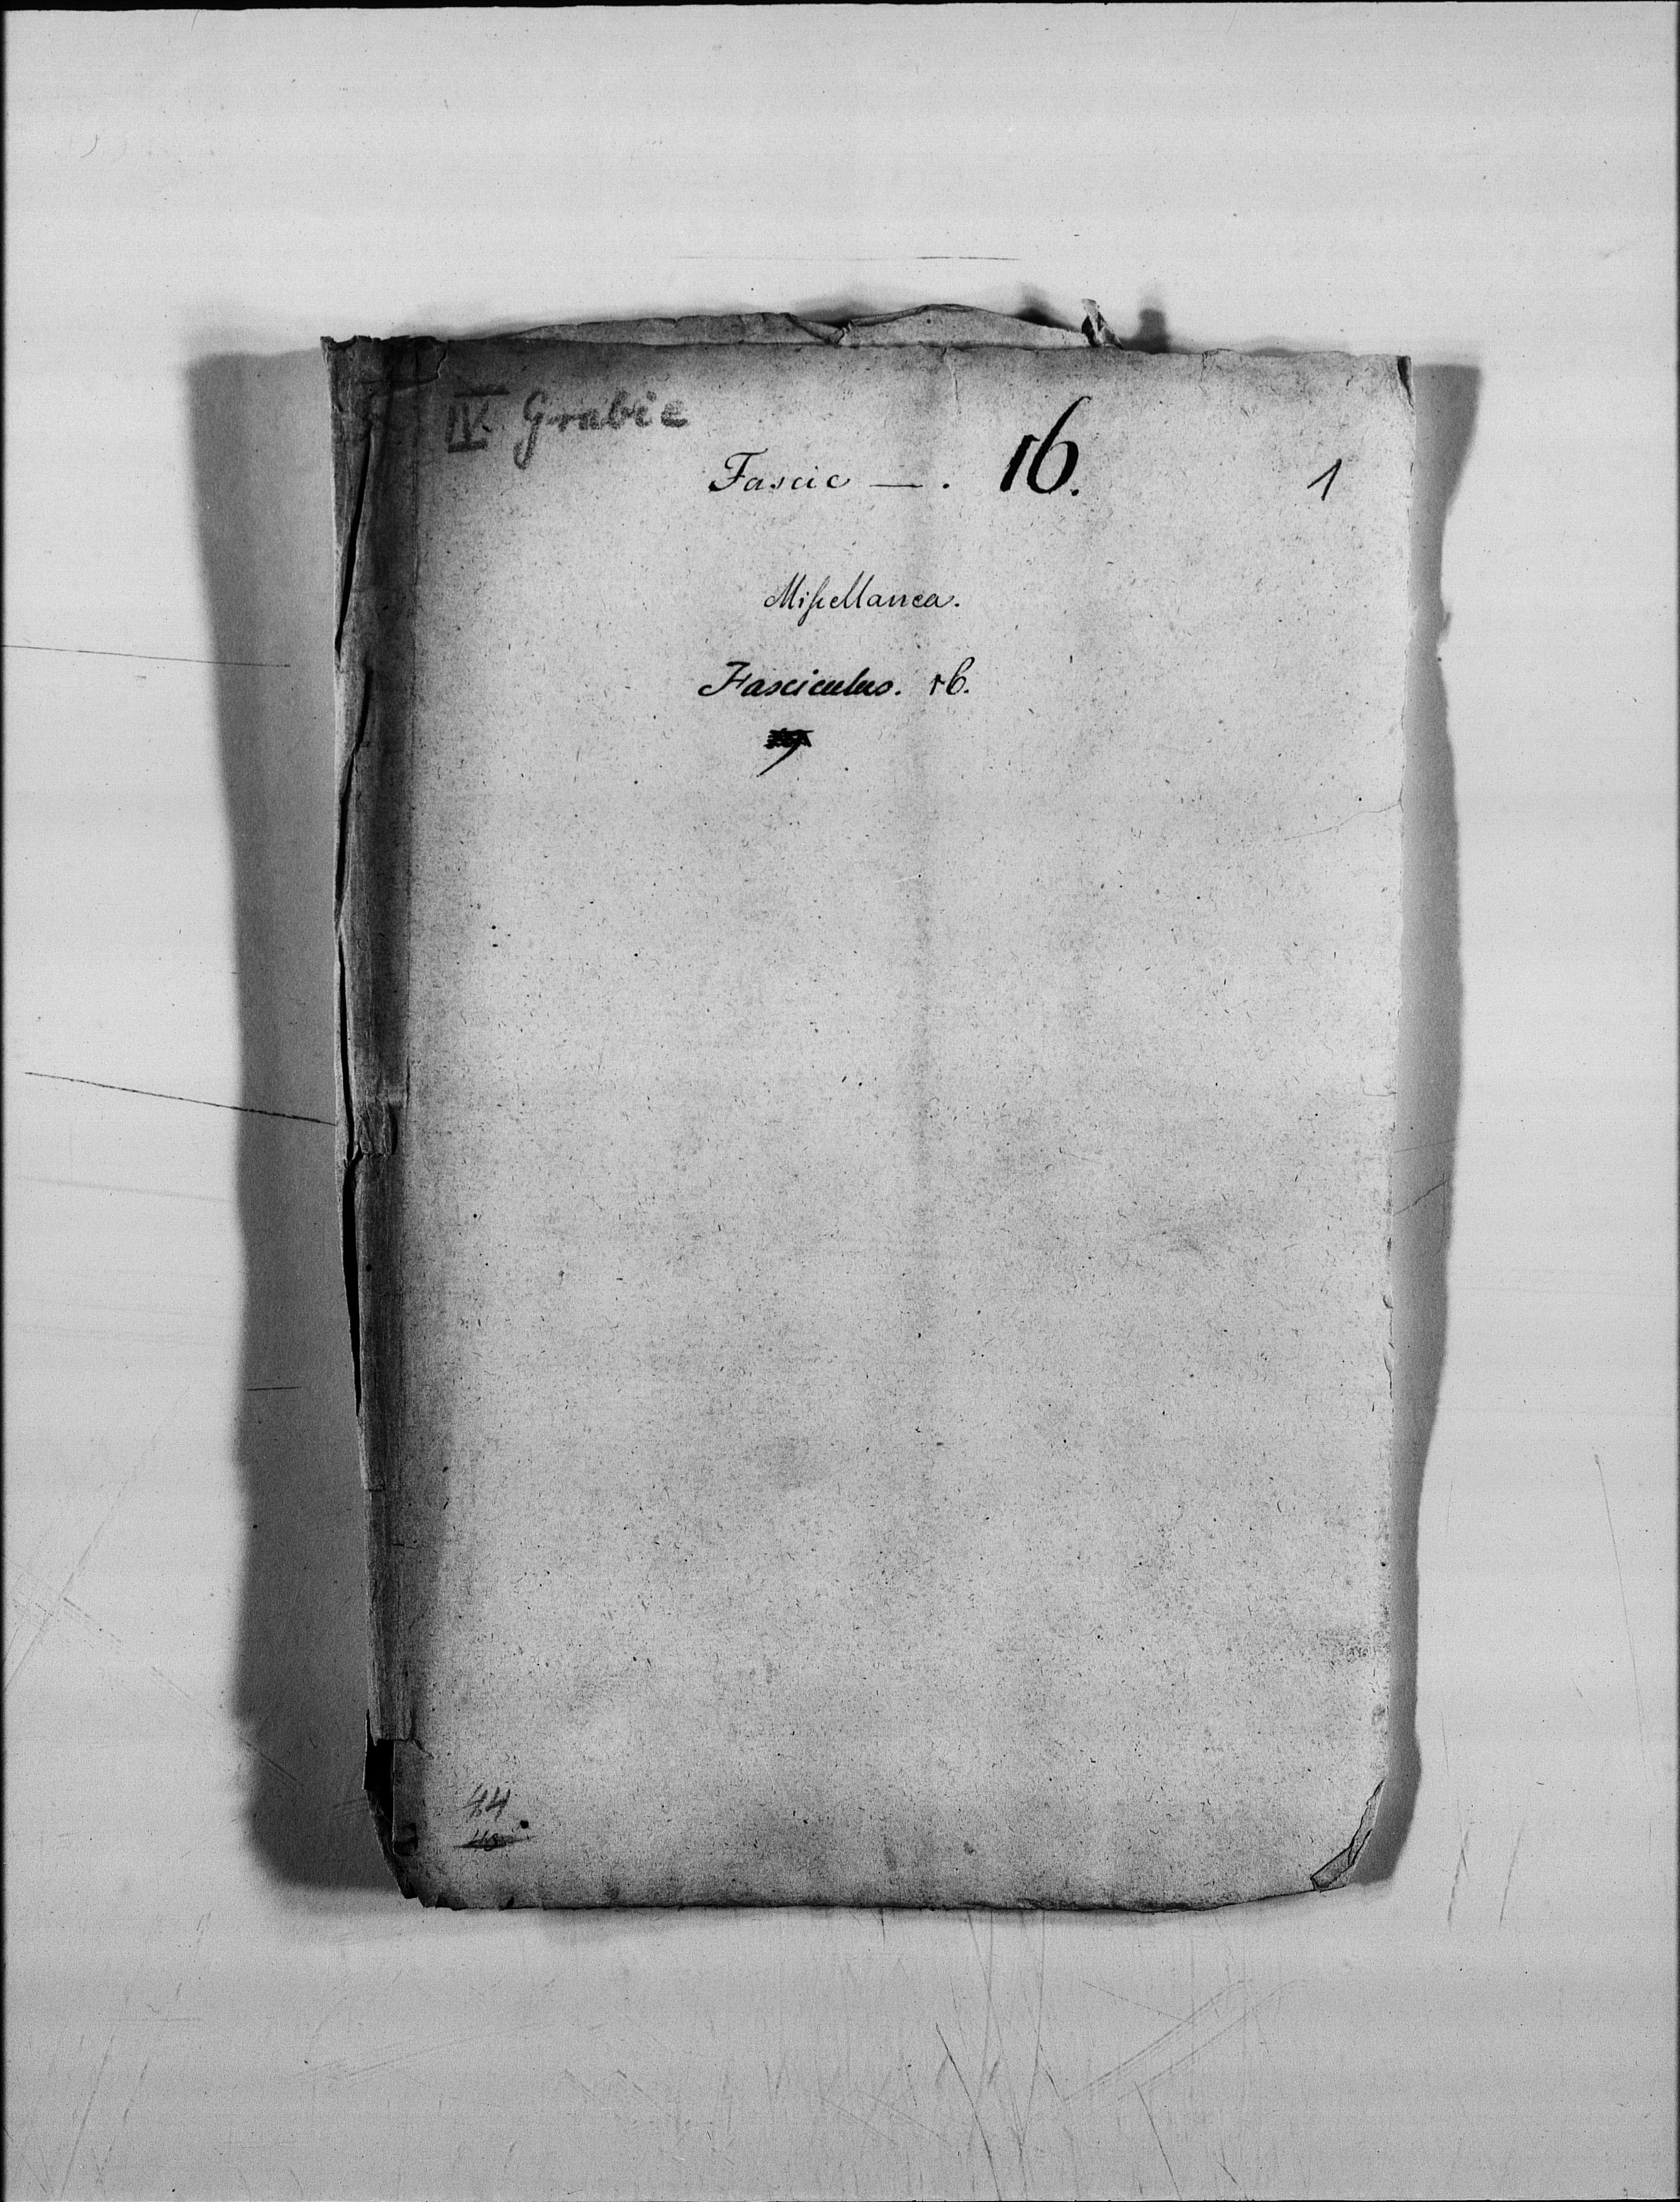 IV. Grabie
Fascic — . 16. 1
Miſcellanea.
Fasciculus. 16.
44